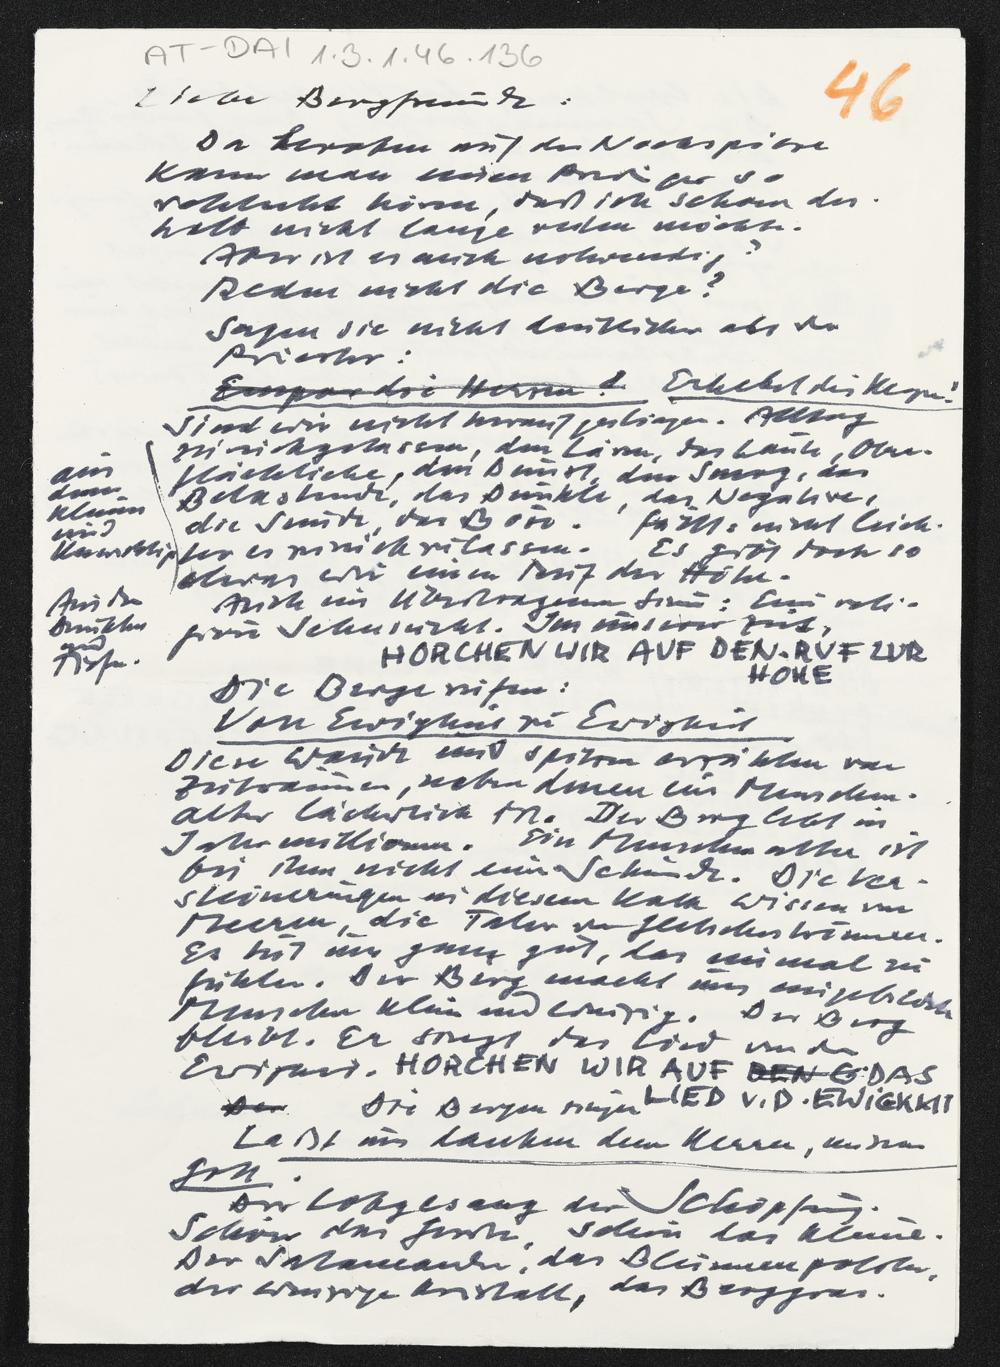 AT-DAI 1.3.1.46.136
46
Liebe Bergfreunde:
Da heroben auf der Nockspitze
kann man einen Prediger so
schlecht hören, daß ich schon des-
halb nicht lange reden möchte.
Aber ist es auch notwendig?
Reden nicht die Berge?
Sagen sie nicht deutlicher als der
Priester:
Empor die Herzen! Erhebet die Herzen!
Sind wir nicht herauf gestiegen. Alltag
zurückgelassen, den Lärm, das Laute, Ober-
flächliche, den Dunst, den Smog, das
Belastende, das Dunkle, das Negative,
die Sünde, das Böse. nicht leich-
ter es zurückzulassen. Es gibt doch so
etwas wie einen Ruf der Höhe.
aus
dem
kleinen
und
Aus dem
Dunklen
und
Tiefen.
Auch im Übertragenen Sinn: Eine reli-
giöse Sehnsucht. In unserer Zeit,
HORCHEN WIR AUF DEN RUF ZUR
HÖHE
Die Berge rufen:
Von Ewigkeit zu Ewigkeit
Diese Wände und Spitzen erzählen von
Zeiträumen, neben denen ein Menschen-
alter lächerlich ist. Der Berg lebt in
Jahrmillionen. Ein Menschenalter ist
bei ihm nicht eine Sekunde. Die Ver-
steinerungen in diesem Kalk wissen von
Meeren, die Täler von Gletscherströmen.
Es tut uns ganz gut, das einmal zu
fühlen. Der Berg macht uns eingebildete
Menschen klein und winzig. Der Berg
bleibt. Er singt das Lied von der
Ewigkeit. HORCHEN WIR AUF DEN G DAS
LIED V.D. EWIGKEIT
Der Die Bergen singen
Laßt uns danken dem Herrn, unserm
Gott.
Der Lobgesang der Schöpfung.
Schön das Große, schön das Kleine.
Der Salamander, das Blumenpolster,
der winzige Kristall, das Berggras.